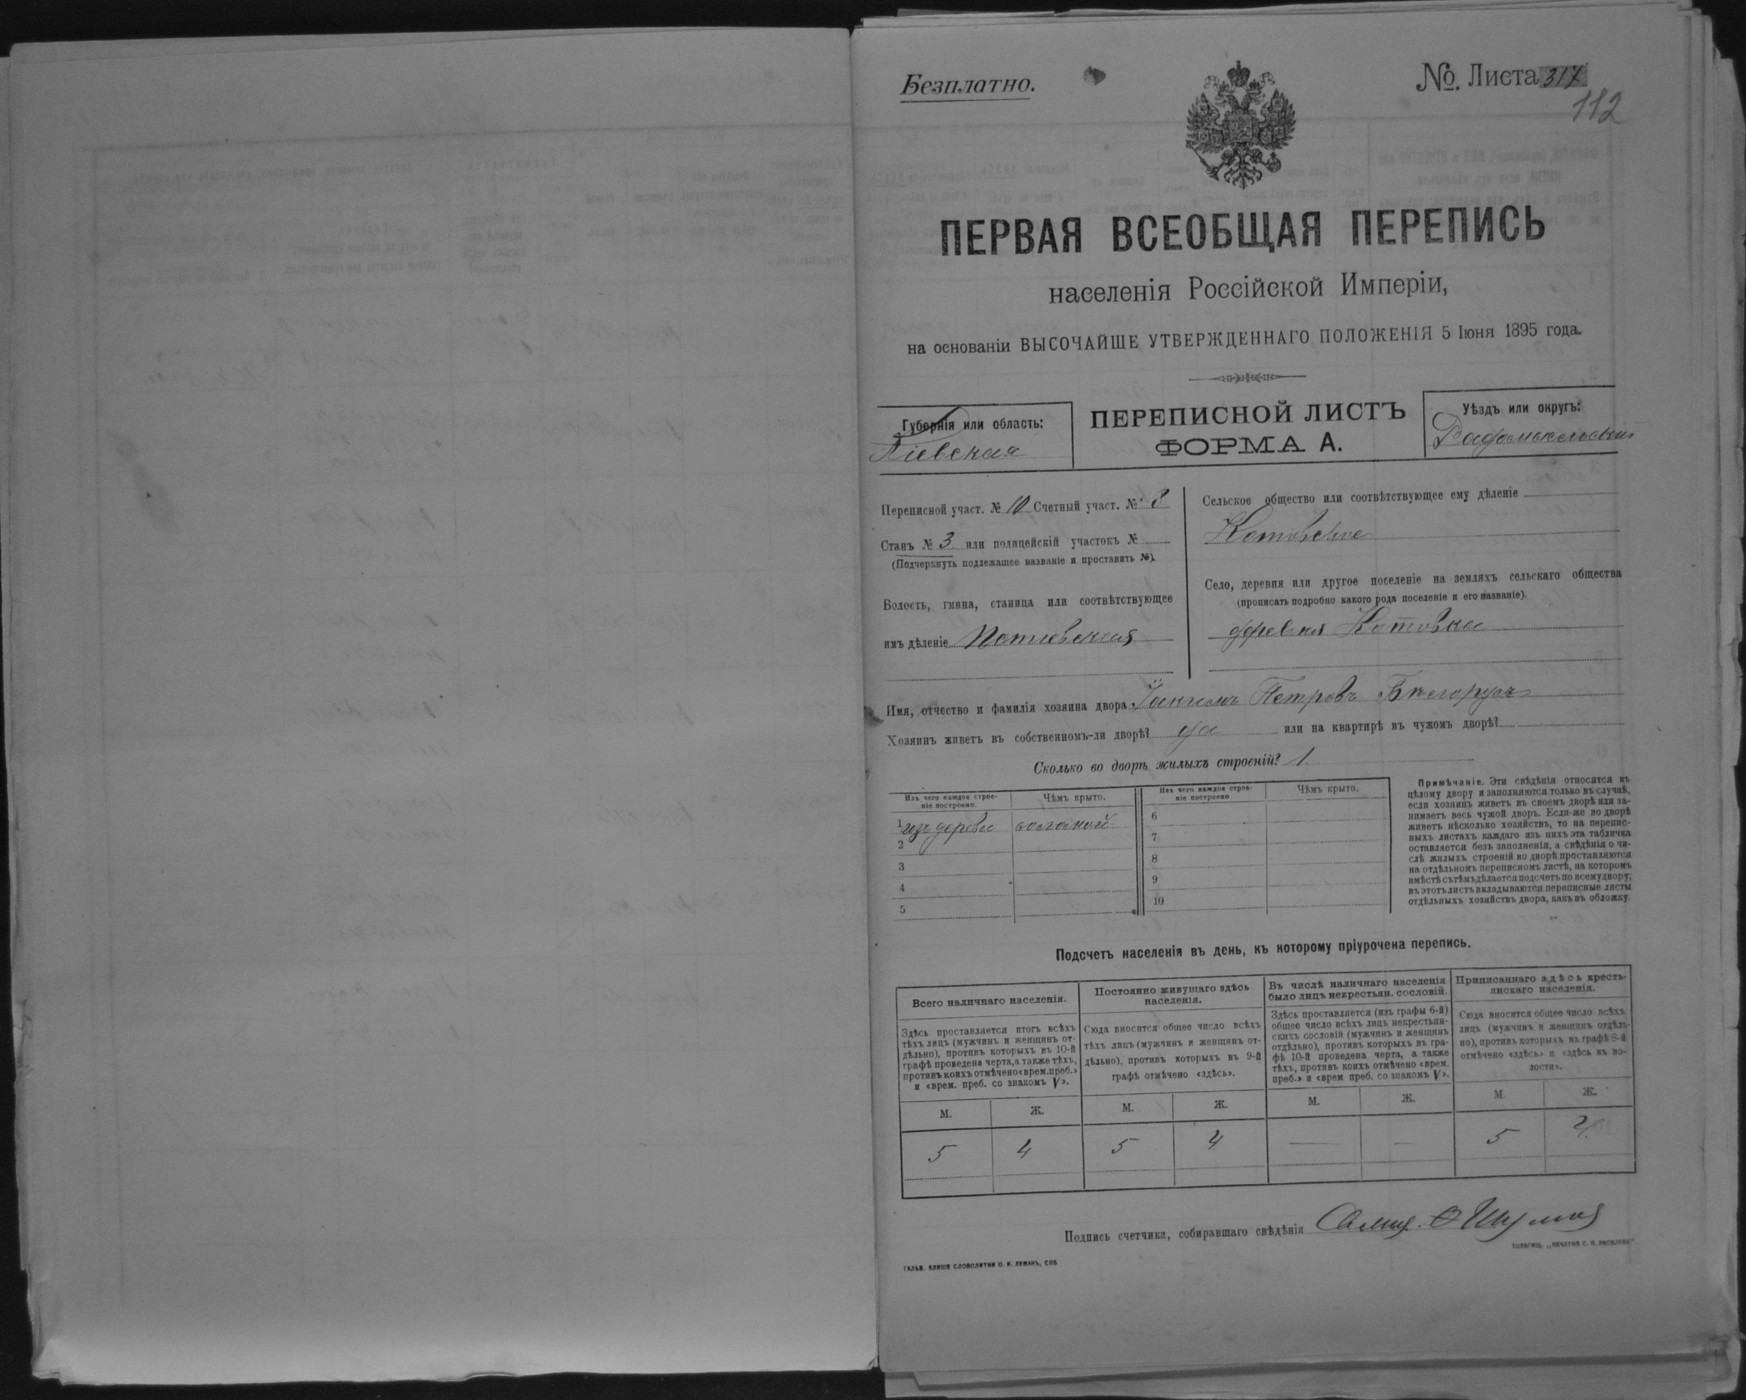 Безплатно.
№. Листа 317
112
ПЕРВАЯ ВСЕОБЩАЯ ПЕРЕПИСЬ
населенія Россійской Имперіи,
на основаніи ВЫСОЧАЙШЕ УТВЕРЖДЕННАГО ПОЛОЖЕНІЯ 5 Іюня 1895 года.
Губернія или область:
Кіевская
ПЕРЕПИСНОЙ ЛИСТЪ
ФОРМА А.
Уѣздъ или округъ:
Радомысльскій
Переписной участ. № 10 Счетный участ. № 8
Станъ № 3 или полицейскій участокъ №
(Подчеркнуть подлежащее названіе и проставить №).
Волость, гмина, станица или соотвѣтствующее
имъ дѣленіе Потіевская
Сельское общество или соотвѣтствующее ему дѣленіе
Котовское
Село, деревня или другое поселеніе на земляхъ сельскаго общества
(прописать подробно какого рода поселеніе и его названіе).
деревня Котовка
Имя, отчество и фамилія хозяина двора Петровъ Бѣлорусъ
Хозяинъ живетъ въ собственномъ-ли дворѣ? да или на квартирѣ въ чужомъ дворѣ?
Сколько во дворѣ жилыхъ строеній? 1.
Изъ чего каждое строе-
ніе построено.
Чѣмъ крыто.
1 изъ дерева соломой
2
3
4
5
Изъ чего каждое строе-
ніе построено
Чѣмъ крыто.
6
7
8
9
10
Примѣчаніе. Эти свѣдѣнія относятся къ
цѣлому двору и заполняются только въ случаѣ,
если хозяинъ живетъ въ своемъ дворѣ или за-
нимаетъ весь чужой дворъ. Если-же во дворѣ
живетъ нѣсколько хозяйствъ, то на перепис-
ныхъ листахъ каждаго изъ нихъ эта табличка
оставляется безъ заполненія, а свѣдѣнія о чи-
слѣ жилыхъ строеній во дворѣ проставляются
на отдѣльномъ переписномъ листѣ, на которомъ
вмѣстѣ съ тѣмъ дѣлается подсчетъ по всему двору;
въ этотъ листъ вкладываются переписные листы
отдѣльныхъ хозяйствъ двора, какъ въ обложку
Подсчетъ населенія въ день, къ которому пріурочена перепись.
Всего наличнаго населенія.
Здѣсь проставляется итогъ всѣхъ
тѣхъ лицъ (мужчинъ и женщинъ от-
дѣльно), противъ которыхъ въ 10-й
графѣ проведена черта, а также тѣхъ,
противъ коихъ отмѣчено «врем. преб.»
и «врем. преб. со знакомъ V».
М. Ж.
5 4
Постоянно живущаго здѣсь
населенія.
Сюда вносится общее число всѣхъ
тѣхъ лицъ (мужчинъ и женщинъ от-
дѣльно), противъ которыхъ въ 9-й
графѣ отмѣчено «здѣсь».
М. Ж.
5 4
Въ числѣ наличнаго населенія
было лицъ некрестьян. сословій.
Здѣсь проставляется (изъ графы 6-й)
общее число всѣхъ лицъ некрестьян-
скихъ сословій (мужчинъ и женщинъ
отдѣльно), противъ которыхъ въ гра-
фѣ 10-й проведена черта, а также
тѣхъ, противъ коихъ отмѣчено «врем.
преб.» и «врем преб. со знакомъ V».
М. Ж.
— —
Приписаннаго здѣсь кресть-
янскаго населенія.
Сюда вносится общее число всѣхъ
лицъ (мужчинъ и женщинъ отдѣль-
но), противъ которыхъ въ графѣ 8-й
отмѣчено «здѣсь» и «здѣсь въ во-
лости».
М. Ж.
5 4
Подпись счетчика, собиравшаго свѣдѣнія
ГАЛЬВ. КЛИШЕ СЛОВОЛИТНИ О. И. ЛЕМАНЪ, СПБ